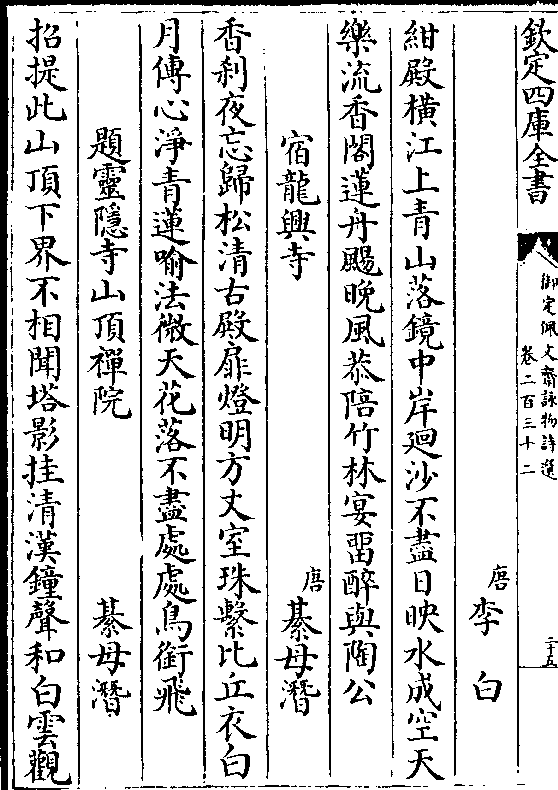 欽定四庫全書
御定佩文齋詠物詩選
卷二百三十二
二十五
唐 李白
紺殿橫江上青山落鏡中岸迴沙不盡日映水成空天
樂流香閣蓮舟颺晚風恭陪竹林宴畱醉與陶公
宿龍興寺 唐 綦毋潛
香刹夜忘歸松清古殿扉燈明方丈室珠繫比丘衣白
月傳心淨青蓮喻法微天花落不盡處處鳥銜飛
題靈隱寺山頂禪院 綦毋潛
招提此山頂下界不相聞塔影挂清漢鐘聲和白雲觀